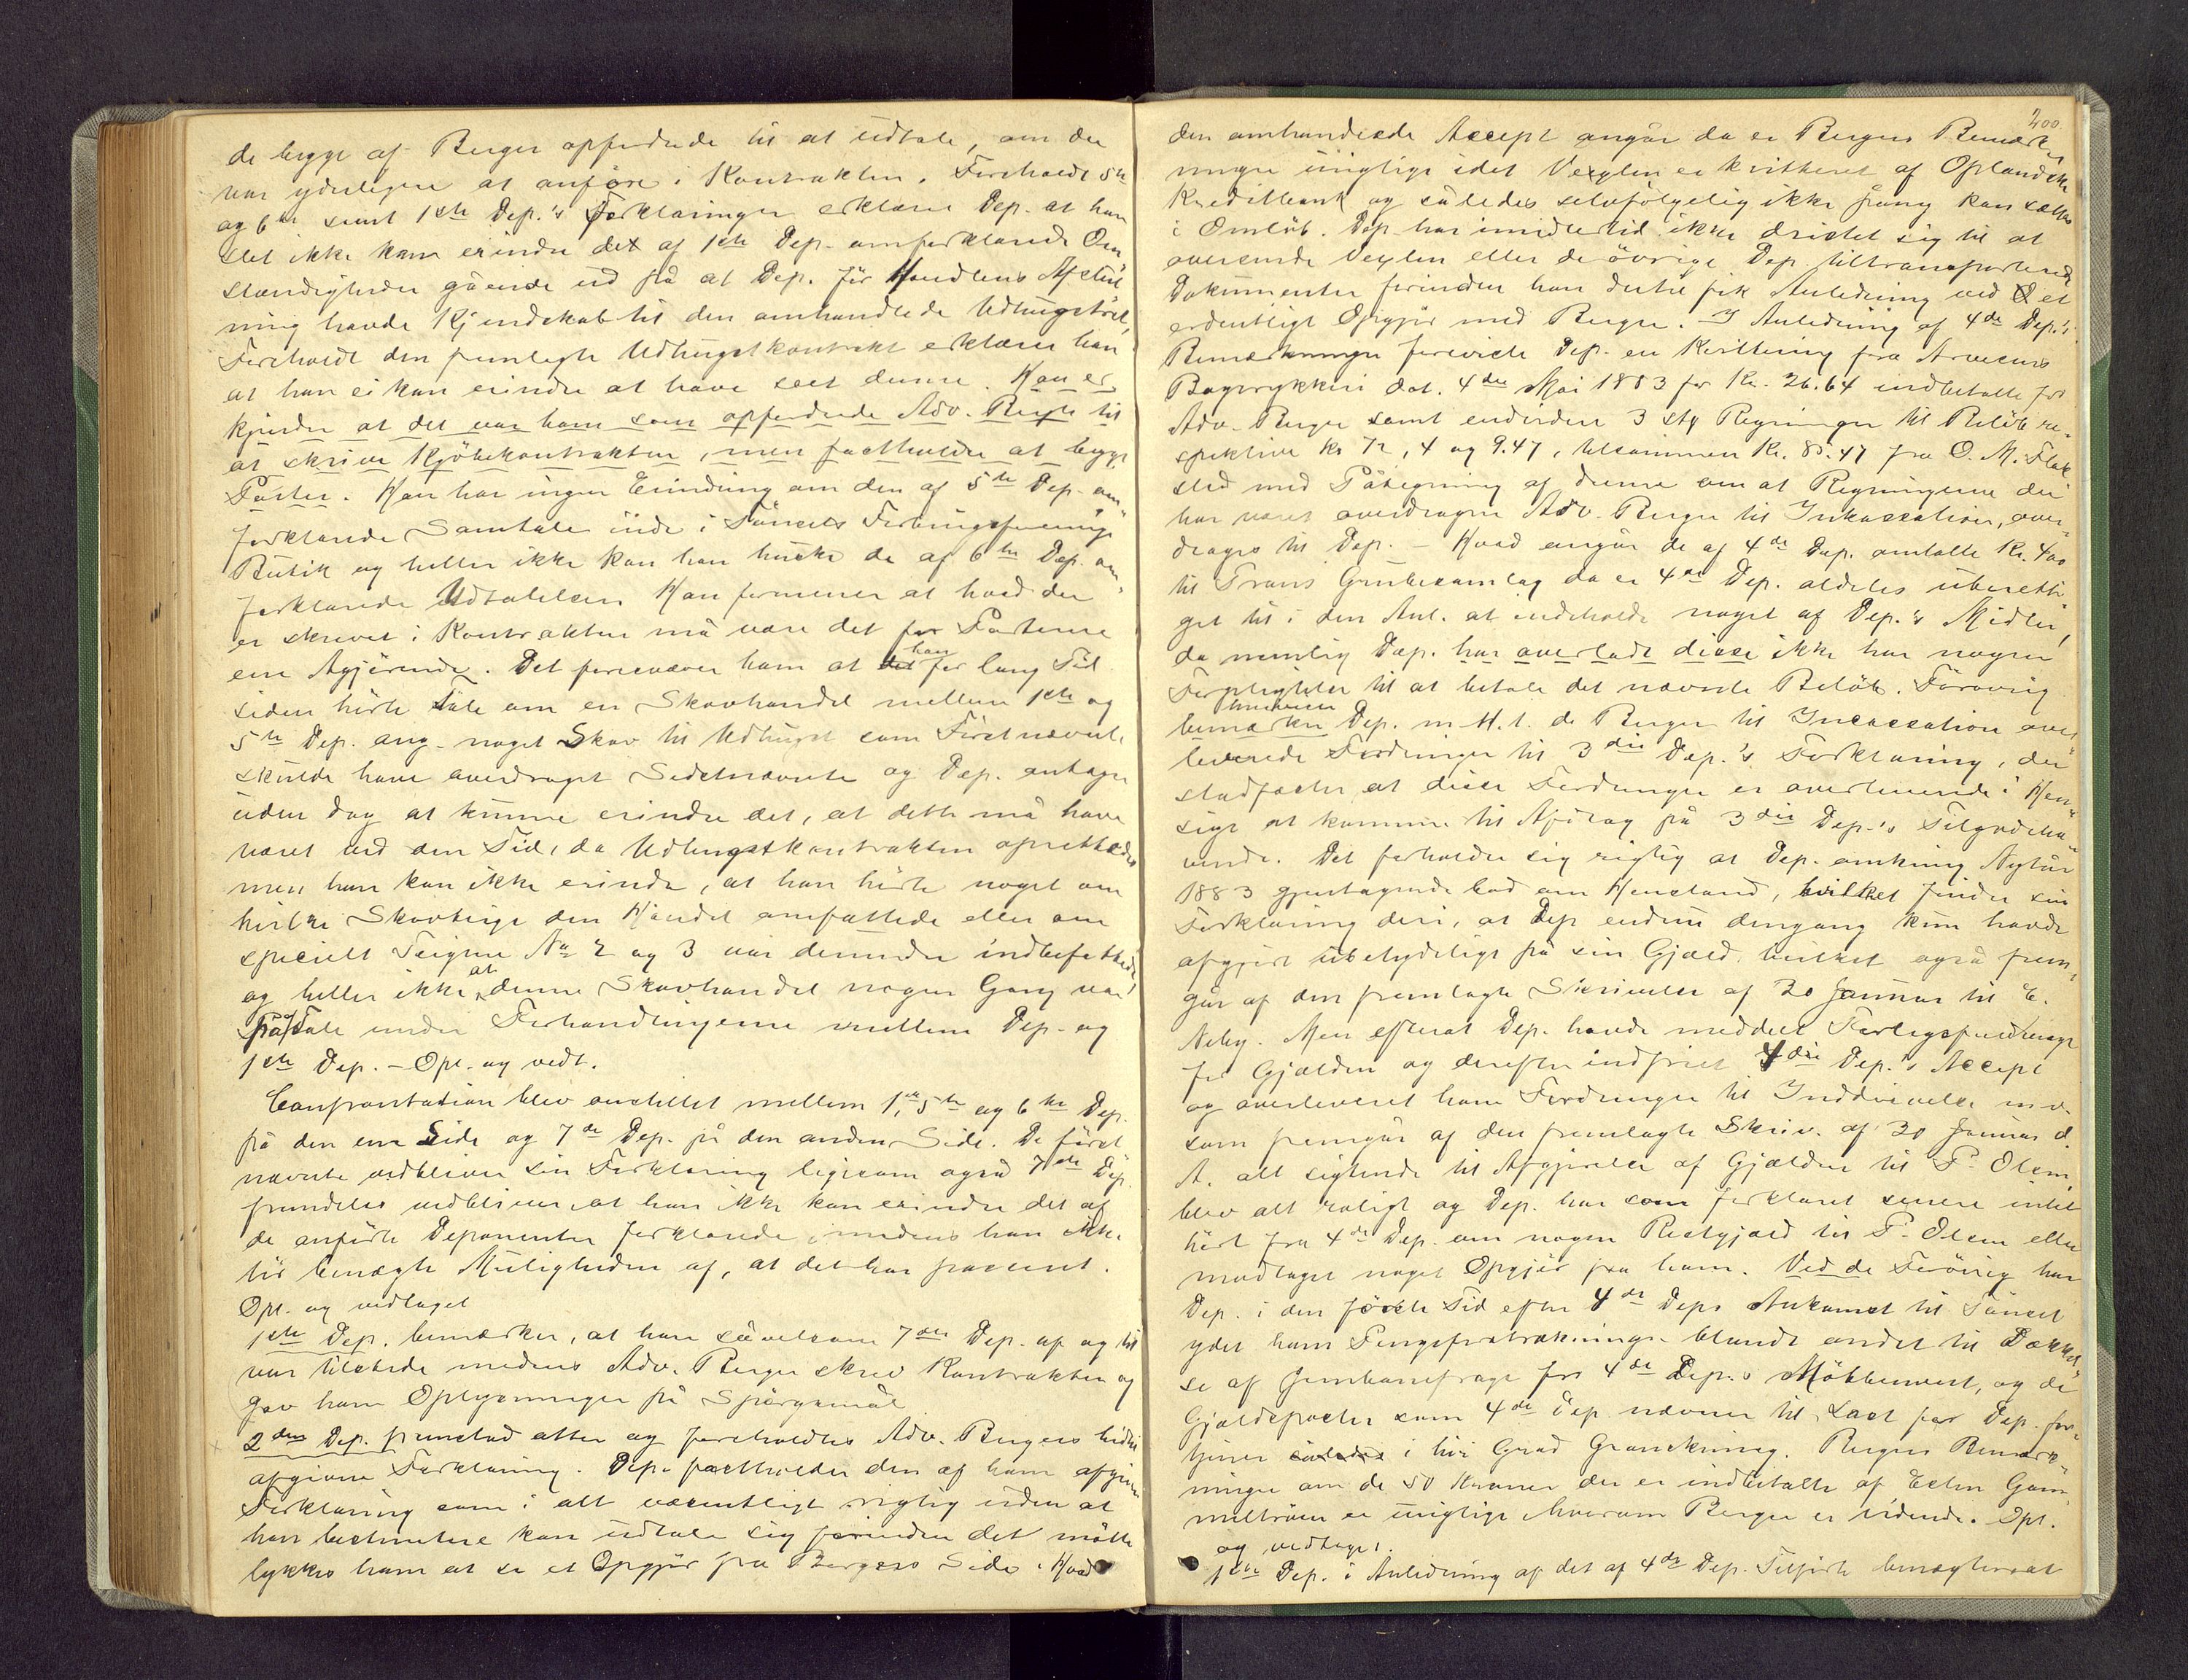 de begge af Berger opfordrede til at udtale, om der
var yderligere at anføre i Kontrakten. Foreholdt 5te
og 6te samt 1ste Dep.'s Forklaringer erklærer Dep. at han
slet ikke kan erindre det af 1ste Dep. omforklarede Om
stændigheder gående ud på at Dep. før Handlens Afslut
ning havde Kjendskab til den omhandlede Udhugstret,
Foreholdt den fremlagte Udhugstkontrakt erklærer han
at han ei kan erindre at have seet denne. Han er
kjender at det var ham som opfordrede Adv. Berger til
at skrive Kjöbekontrakten, men fastholder at begge
Parter. Han har ingen Erindring om den af 5te Dep. om
forklarede Samtale inde i Tönsets Forbrugsforenings
Butik og heller ikke kan han huske de af 6te Dep. om
forklarede Udtalelser. Han formener at hvad der
er skrevet i Kontrakten må være det for Parterne
ene Afgjörende. Det forekommer ham at han for lang Tid
siden hörte Tale om en Skovhandel mellem 1ste og
5te Dep. ang. noget Skov til Udhugst som Förstnævnte
skulde have overdraget Sidstnævnte og Dep. antager
uden dog at kunne erindre det, at dette må have
været ved den Tid, da Udhugstkontrakten oprettedes
men han kan ikke erindre, at han hörte noget om
hvilke Skovteige den Handel omfattede eller om
specielt Teigene No 2 og 3 var derunder indbefattede,
og heller ikke at denne Skovhandel nogen Gang var
på Tale under Forhandlingerne mellem Dep. og
1ste Dep. – Opl. og vedt.
Confrontation blev anstillet mellem 1ste, 5te og 6te Dep.
på den ene Side og 7de Dep. på den anden Side. De först
nævnte vedbliver sin Forklaring ligesom også 7de Dep.
fremdeles vedbliver, at han ikke kan erindre det af
de anförte Deponenter forklarede, imedens han ikke
tör benægte Muligheden af, at det har passeret.
Opl. og vedtaget
1ste Dep. bemærker, at han såvelsom 7de Dep. af og til
var tilstede medens Adv. Berger skrev Kontrakten og
gav ham Oplysninger på Spörgsmål
2den Dep. fremstod atter og foreholdtes Adv. Bergers hidtil
afgivne Forklaring. Dep. fastholder den af ham afgivne
Forklaring som i alt væsentligt rigtig uden at
han bestemtere kan udtale sig forinden det måtte
lykkes ham at se et Opgjör fra Bergers Side. Hvad
200.
den omhandlede Accept angår da er Bergers Bemærk
ninger urigtige idet Vexlen er kvitteret af Oplandske
Kreditbank og således selvfölgelig ikke påny kan sættes
i Omlöb. Dep. har imidlertid ikke dristet sig til at
oversende Vexlen eller de övrige Dep. tiltransporterede
Dokumenter forinden han dertil fik Anledning ved et
ordentligt Opgjör med Berger. I Anledning af 4de Dep.'s
Bemærkninger foreviste Dep. en Kvittering fra Arvesens
Bogtrykkeri dat. 4de Mai 1883 for Kr. 26.64 indbetalte for
Adv. Berger samt endvidere 3 stk Regninger til Belöb re,
spektive kr 72, 4 og 9.47, tilsammen Kr. 85.47 fra O. M. Flak
stad med Påtegning af denne om at Regningerne der
har været overdragne Adv. Berger til Inkassation, over
drages til Dep. – Hvad angår de af 4de Dep. omtalte Kr. 400
til Trons Grubesamlag da er 4de Dep. aldeles uberetti
get til i den Anl. at indeholde noget af Dep.'s Midler,
da nemlig Dep. har overladt disse ikke har nogen
Forpligtelse til at betale det nævnte Belöb. Forövrig
henviser Dep. m. H. t. de Berger til Incassation over
leverede Fordringer til 3die Dep.'s Forklaring, der
stadfæster at disse Fordringer er overleverede i Hen
sigt at komme til Afdrag på 3die Dep.'s Tilgodeha
vende. Det forholder sig rigtig at Dep. omkring Nytår
1883 gjentagende bad om Henstand, hvilket finder sin
Forklaring deri, at Dep endnu dengang kun havde
afgjort ubetydeligt på sin Gjæld, hvilket også frem,
går af den fremlagte Skrivelse af 20 Januar til E.
Neby. Men efterat Dep. havde meddelt
for Gjælden og derefter indfriet 4die Dep.'s Accept
og overleveret ham Fordringer til Inddrivelse m.v.
som fremgår af den fremlagte Skriv. af 30 Januar d.
A. alt sigtende til Afgjörelse af Gjælden til P. Olsen,
blev alt roligt og Dep. har som forklaret senere intet
hört fra 4de Dep. om nogen Restgjæld til P. Olsen eller
modtaget noget Opgjör fra ham. Ved de Forövrig har
Dep. i den förste Tid efter 4de Deps Ankomst til Tönset
ydet ham Pengeforstrækninger blandt andet til Dækkel
se af Jernbanefragt for 4de Dep.s Möblement, og de
Gjældsposter som 4de Dep. nævner til Last for Dep. for,
tjener i höi Grad Granskning. Bergers Bemærk,
ninger om de 50 Kroner der er indbetalte af Esten Gam
meltröen er urigtige hvorom Berger er vidende. Opl.
og vedtaget.
1ste Dep. i Anledning af det af 4de Dep. Tilförte benægter at